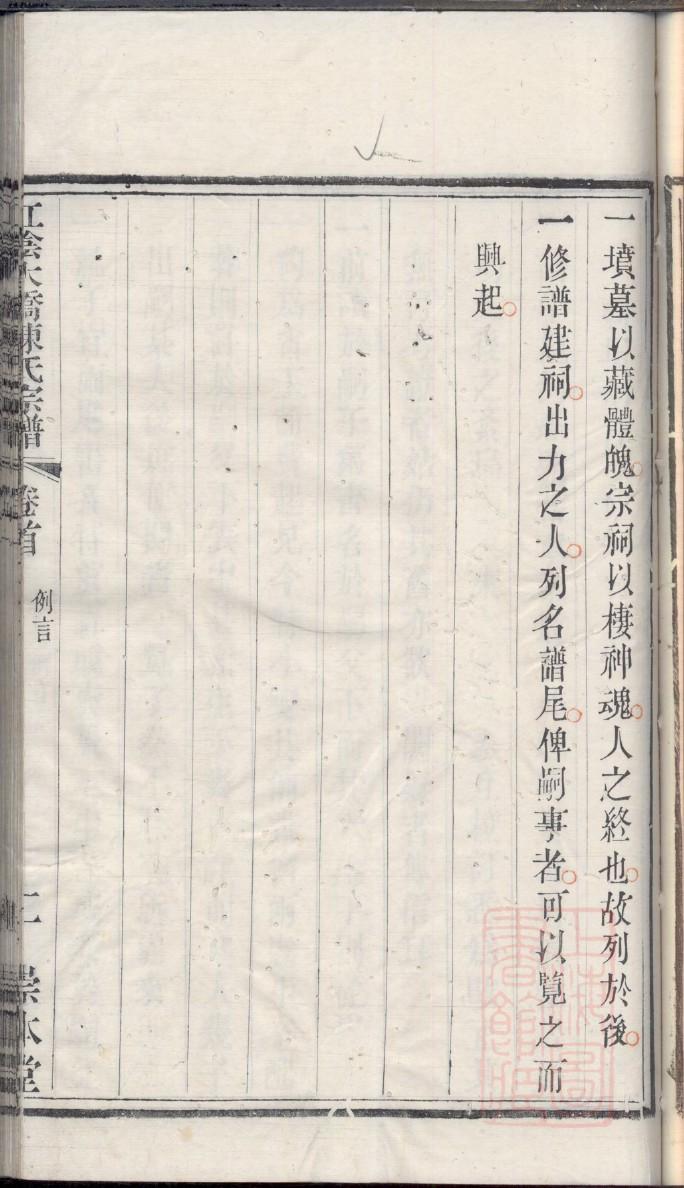 一墳墓以藏體魄宗祠以棲神魂人之終也故列於後
一修譜建祠出力之人列名譜尾俾嗣事者可以覽之而
興起
江陰大橋陳氏宗譜
卷首
例言
二
崇本堂